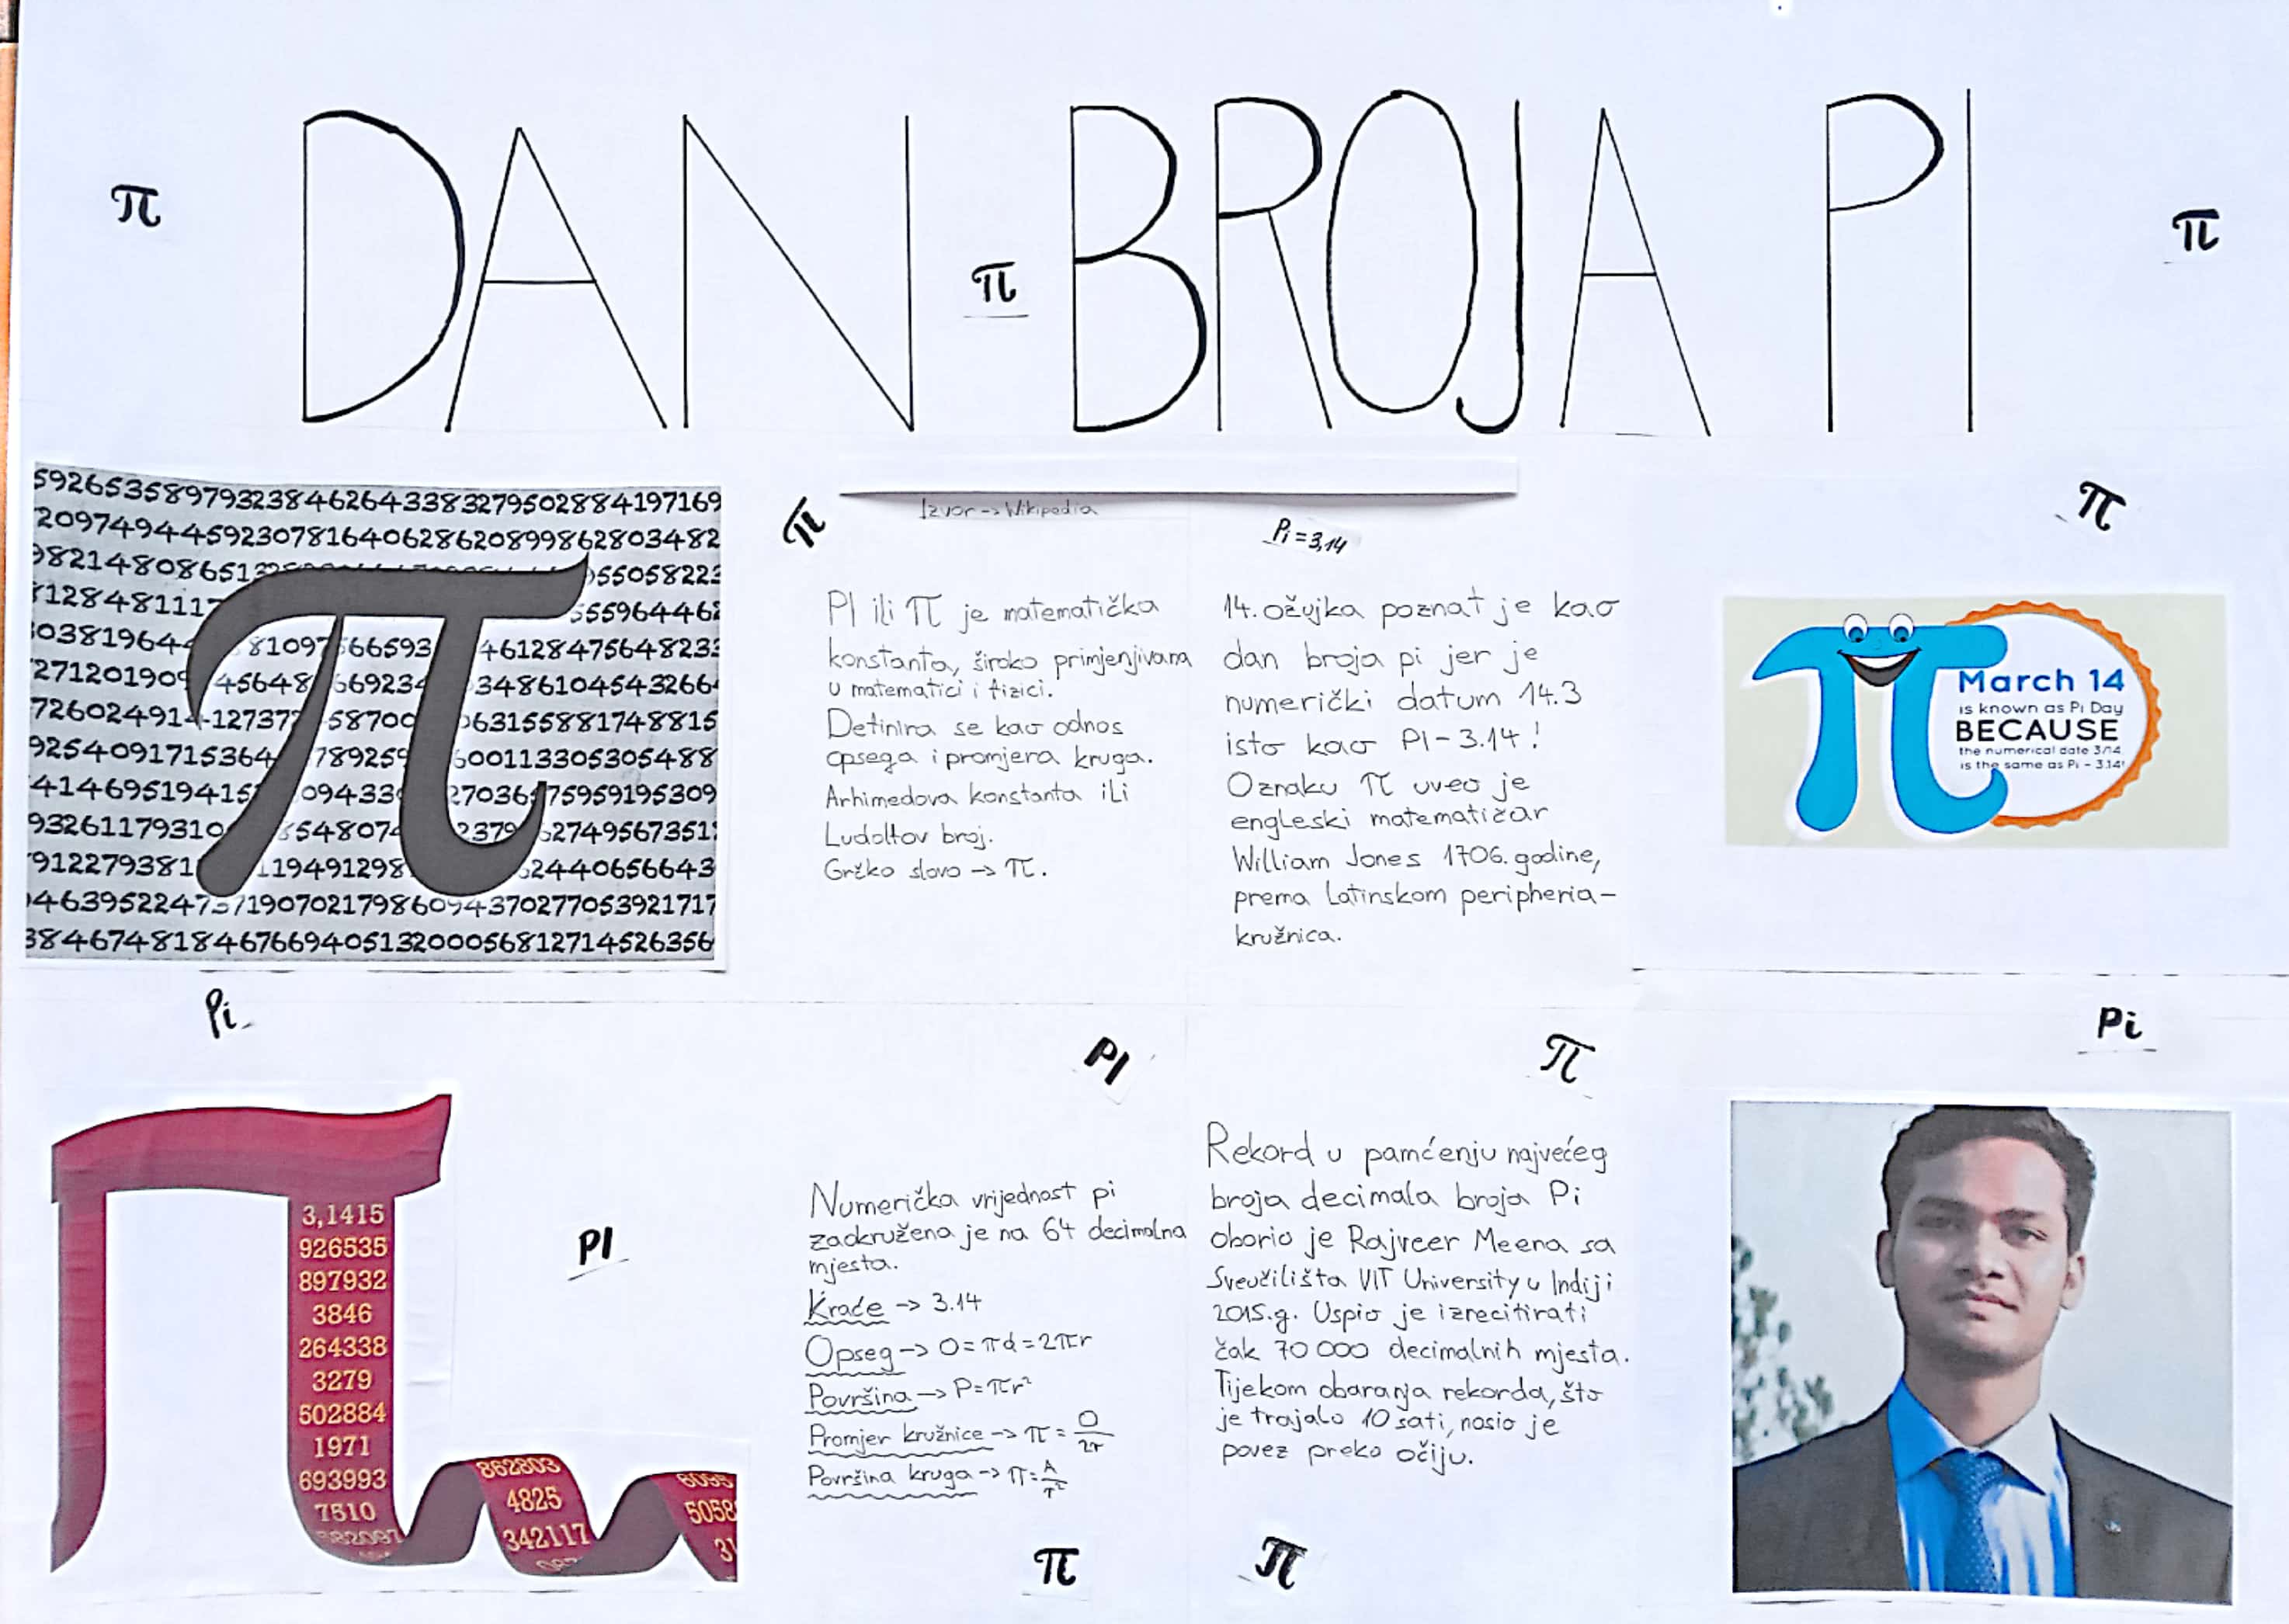 DAN BROJA PI
π
π
π
592653589793238462643383279502884197169
2097494459230781640628620899862803482
98214808651 55058223
128481117 555964462
03819644 81097 66593 4612847564823
27120190 45648 66923 3486104543266
726024914 12737 58700 63155881748815
925409171536 4 78925 600113305305488
41469519415 09433 27036 75959195309
93261179310 8548074 2379 62749567351
912279381 11949128 24406566 43
4639522473719070217986094370277053921717
3846748184676694051320005681271452 6356
Pi
π
Izvor -> Wikipedia
PI ili π je matematička
konstanta, široko primjenjivana
u matematici i fizici.
Definira se kao odnos
opsega i promjera kruga.
Arhimedova konstanta ili
Ludolfov broj.
Grčko slovo -> π.
Pi = 3,14
14. ožujka poznat je kao
dan broja pi jer je
numerički datum 14.3
isto kao PI - 3.14!
Oznaku π uveo je
engleski matematičar
William Jones 1706. godine,
prema latinskom peripheria -
kružnica.
π
March 14
is known as Pi Day
BECAUSE
the numerical date 3/14
is the same as Pi - 3.14!
3,1415
926535
897932
3846
264338
3279
502884
1971
693993
7510
582097
862803
4825
342117
5058
31
PI
PI
Numerička vrijednost pi
zaokružena je na 64 decimalna
mjesta.
Kraće -> 3.14
Opseg -> O = πd = 2πr
Površina -> P = πr²
Promjer kružnice -> π = O/2r
Površina kruga -> π = A/r²
π
π
Rekord u pamćenju najvećeg
broja decimala broja Pi
oborio je Rajveer Meena sa
Sveučilišta VIT University u Indiji
2015.g. Uspio je izrecitirati
čak 70 000 decimalnih mjesta.
Tijekom obaranja rekorda, što
je trajalo 10 sati, nosio je
povez preko očiju.
π
Pi